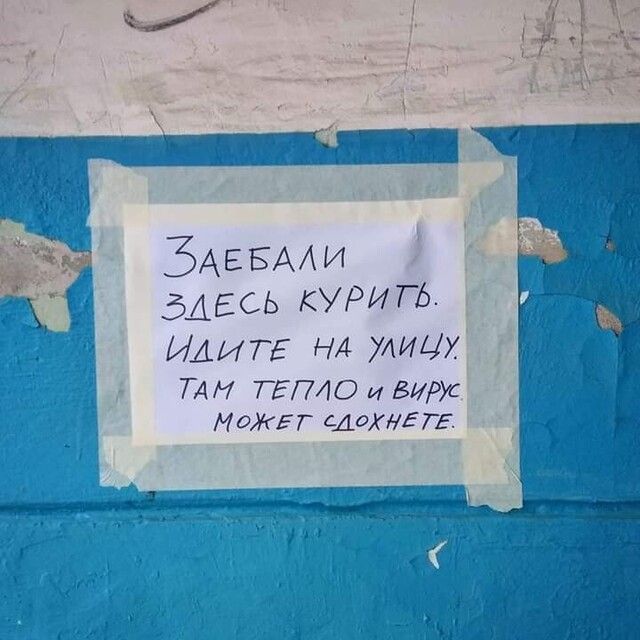 Заебали
здесь курить.
Идите на улицу.
Там тепло и вирус.
Может сдохнете.